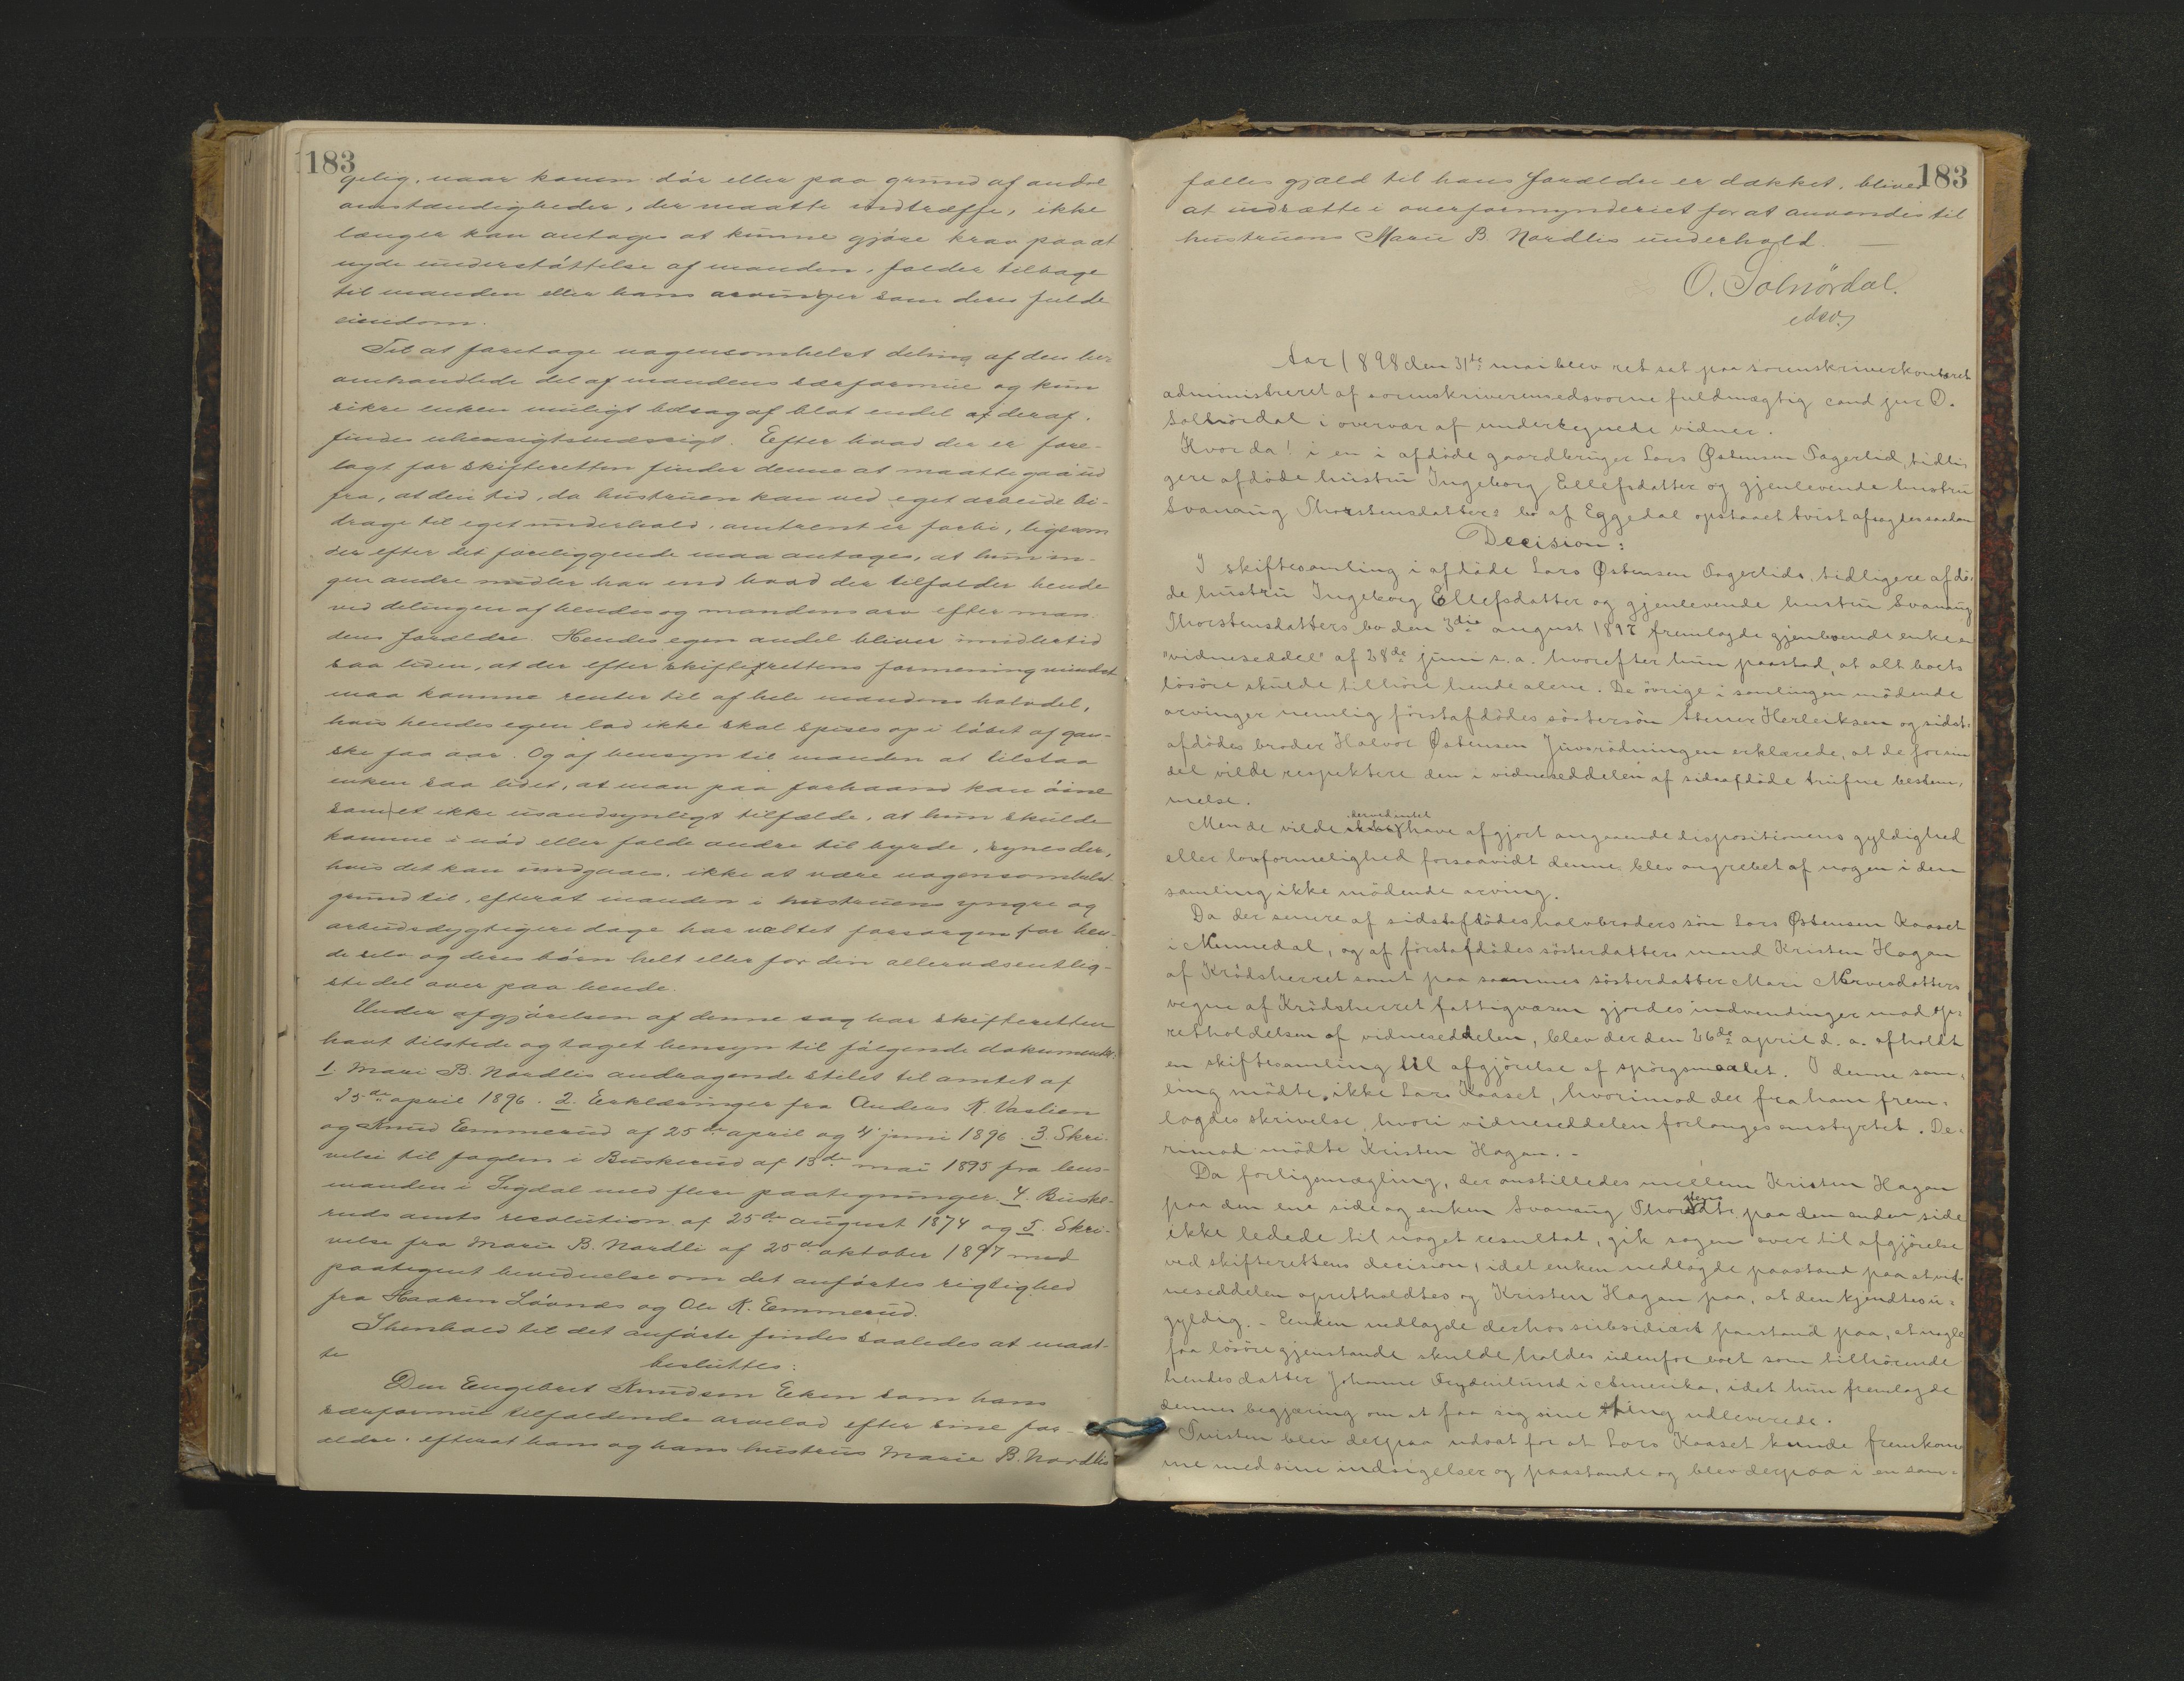 183
gelig, naar konen dör eller paa grund af andre
omstændigheder, der maatte indtræffe, ikke
længer kan antages at kunne gjöre krav paa at
nyde understöttelse af manden, falder tilbage
til manden eller hans arvinger som deres fulde
eiendom.
Til at foretage nogensomhelst deling af den her
omhandlede del af mandens særformue og kun
sikre enken muligt bidrag af blot endel af deraf,
findes uhensigtsmæssigt. Efter hvad der er fore-
lagt for skifteretten finder denne at maatte gaa ud
fra, at den tid, da hustruen kan ved eget arbeide bi-
drage til eget underhold, omtrent er forbi, ligesom
der efter det foreliggende maa antages, at hun in-
gen andre midler har end hvad der tilfalder hende
ved delingen af hendes og mandens arv efter man-
dens forældre. Hendes egen andel bliver imidlertid
saa liden, at der efter skifterettens formening mindst
maa komme renter til af hele mandens halvdel,
hvis hendes egen lod ikke skal spises op i löbet af gan-
ske faa aar. Og af hensyn til manden at tilstaa
enken saa lidet, at man paa forhaand kan öine
som et ikke usandsynligt tilfælde, at hun skulde
komme i nöd eller falde andre til byrde, synes der,
hvis det kan undgaaes, ikke at være nogensomhelst
grund til, efterat manden i hustruens yngre og
arbeidsdygtigere dage har væltet forsorgen for hen-
de selv og deres börn helt eller for den allervæsentlig-
ste del over paa hende.
Under afgjörelsen af denne sag har skifteretten
havt tilstede og taget hensyn til fölgende dokumenter:
1 Mari B. Nordlis andragende stilet til amtet af
25de april 1896. 2. Erklæringer fra Anders K. Vaslien
og Knud Emmerud af 25de april og 4 juni 1896. 3. Skri-
velse til fogden i Buskerud af 13de mai 1895 fra lens-
manden i Sigdal med flere paategninger. 4. Buske-
ruds amts resolution af 25de august 1874 og 5. Skri-
velse fra Marie B. Nordli af 25de oktober 1897 med
paategnet bevidnelse om det anförtes rigtighed
fra Haaken Lövnes og Ole K. Emmerud.
I henhold til det anförte findes saaledes at maat-
te
besluttes:
Den Engebret Knudsen Eken som hans
særformue tilfaldende arvelod efter sine for-
ældre, efterat hans og hans hustrus Marie B. Nordlis
183
fælles gjæld til hans forældre er dækket, bliver
at indsætte i overformynderiet for at anvendes til
hustruens Marie B. Nordlis underhold. —
O. Solnördal.
edsv.
Aar 1898 den 31te mai blev ret sat paa sorenskriverkontoret
administreret af sorenskriverens edsvorne fuldmægtig cand jur O.
Solnördal i overvær af undertegnede vidner.
Hvorda! i en i afdöde gaardbruger Lars Østensen Tagerlid, tidli-
gere afdöde hustru Ingeborg Ellefsdatter og gjenlevende hustru
Svanaug Thorstensdatters bo af Eggedal opstaaet tvist afsagdes saadan
Decision:
I skiftesamling i afdöde Lars Østensen Tagerlids, tidligere afdö-
de hustru Ingeborg Ellefsdatter og gjenlevende hustru Svanaug
Thorstensdatters bo den 3die august 1897 fremlagde gjenlevende enke en
"vidneseddel" af 28de juni s. a. hvorefter hun paastod, at alt boets
lösöre skulde tilhöre hende alene. De övrige i samlingen mödende
arvinger nemlig förstafdödes söstersön Stener Herleiksen og sidst-
afdödes broder Halvor Østensen Juvsrödningen erklærede, at de for sin
del vilde respektere den i vidneseddelen af sidsafdöde trufne bestem-
melse.
Men de vilde derved intet have afgjort angaaende dispositionens gyldighed
eller lovformelighed forsaavidt denne blev angrebet af nogen i den
samling ikke mödende arving.
Da der senere af sidstafdödes halvbroders sön Lars Østensen Kaaset
i Numedal, og af förstafdödes sösterdatters mand Kristen Hagan
af Krödsherret samt paa sammes sösterdatter Mari Nervesdatters
vegne af Krödsherret fattigvæsen gjordes indvendinger mod op-
retholdelsen af vidneseddelen, blev der den 26de april d. a. afholdt
en skiftesamling til afgjörelse af spörgsmaalet. I denne sam-
ling mödte ikke Lars Kaaset, hvorimod der fra ham frem-
lagdes skrivelse, hvori vidneseddelen forlanges omstyrtet. De-
rimod mödte Kristen Hagan. -
Da forligsmægling, der anstilledes mellem Kristen Hagan
paa den ene side og enken Svanaug Thorstensdtr. paa den anden side
ikke ledede til noget resultat, gik sagen over til afgjörelse
ved skifterettens decision, idet enken nedlagde paastand paa at vid-
neseddelen opretholdtes og Kristen Hagan paa, at den kjendtes u-
gyldig. - Enken nedlagde derhos subsidiært paastand paa, at nogle
faa lösöregjenstande skulde holdes udenfor boet som tilhörende
hendes datter Johanne Frydenlund i Amerika, idet hun fremlagde
dennes begjæring om at faa sig sine ting udleverede.
Tvisten blev derpaa udsat for at Lars Kaaset kunde fremkom-
me med sine indsigelser og paastande og blev derpaa i en sam-